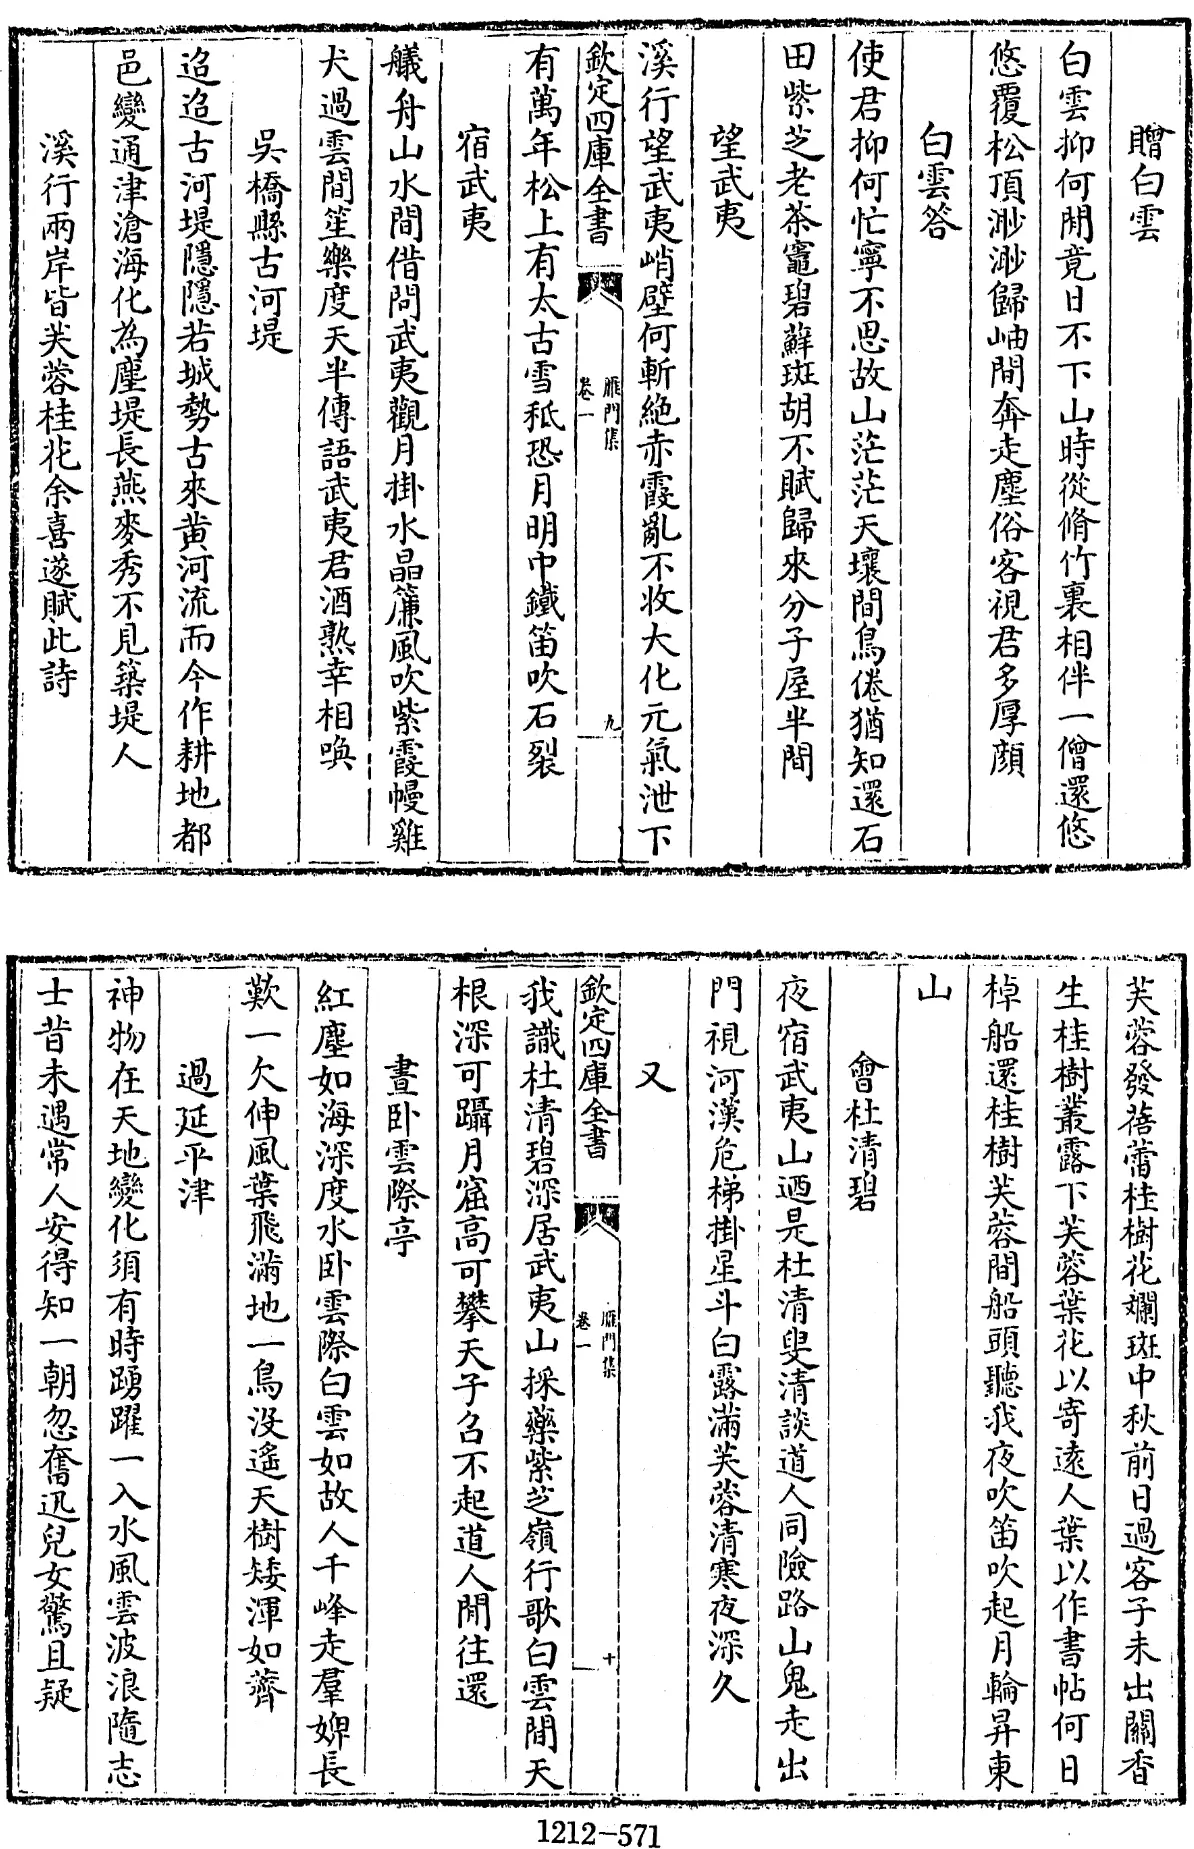 贈白雲
白雲抑何閒竟日不下山時從脩竹裏相伴一僧還悠
悠覆松頂渺渺歸岫間奔走塵俗客視君多厚顔
白雲答
使君抑何忙寧不思故山茫茫天壤間鳥倦猶知還石
田紫芝老茶竈碧蘚斑胡不賦歸來分子屋半間
望武夷
溪行望武夷峭壁何斬絶赤霞亂不收大化元氣泄下
欽定四庫全書
鴈門集
卷一
九
有萬年松上有太古雪秪恐月明中鐵笛吹石裂
宿武夷
艤舟山水間借問武夷觀月掛水晶簾風吹紫霞幔雞
犬過雲間笙樂度天半傳語武夷君酒熟幸相喚
吳橋縣古河堤
迢迢古河堤隱隱若城勢古來黄河流而今作耕地都
邑變通津滄海化為塵堤長燕麥秀不見築堤人
溪行兩岸皆芙蓉桂花余喜遂賦此詩
芙蓉發蓓蕾桂樹花斕斑中秋前日過客子未出關香
生桂樹叢露下芙蓉葉花以寄遠人葉以作書帖何日
棹船還桂樹芙蓉間船頭聽我夜吹笛吹起月輪昇東
山
會杜清碧
夜宿武夷山迺是杜清叟清談道人同險路山鬼走出
門視河漢危梯掛星斗白露滿芙蓉清寒夜深久
又
欽定四庫全書
鴈門集
卷一
十
我識杜清碧深居武夷山採藥紫芝嶺行歌白雲間天
根深可躡月窟高可攀天子召不起道人閒往還
晝卧雲際亭
紅塵如海深度水卧雲際白雲如故人千峰走羣婢長
歎一欠伸風葉飛滿地一鳥没遙天樹矮渾如薺
過延平津
神物在天地變化須有時踴躍一入水風雲波浪隨志
士昔未遇常人安得知一朝忽奮迅兒女驚且疑
1212-571